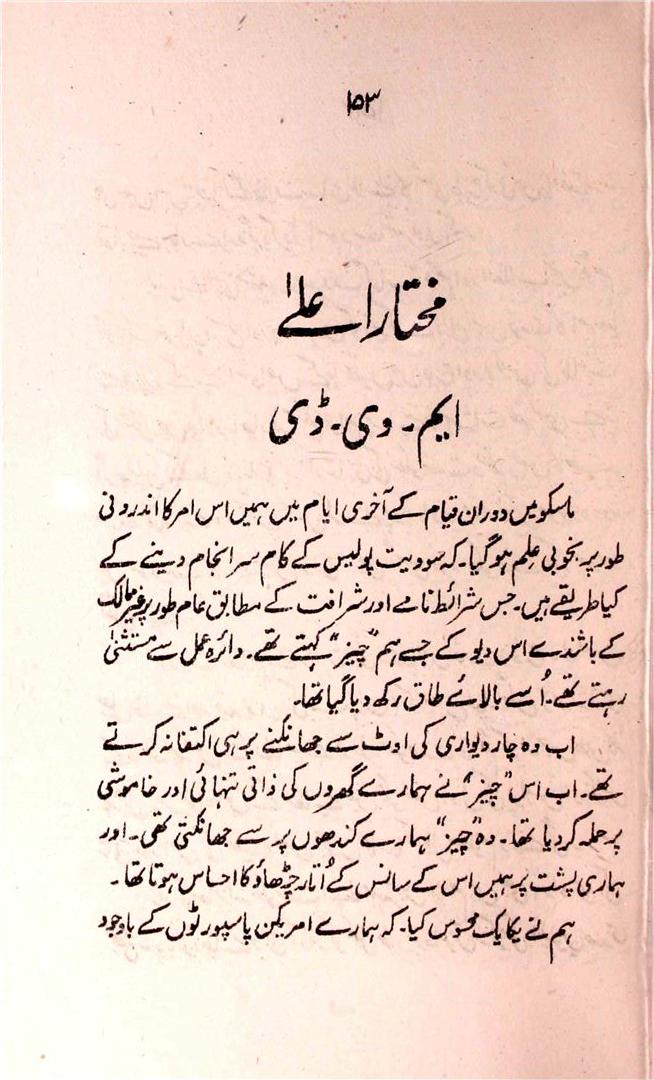 ۱۵۳
مختار اعلےٰ
ایم۔ وی۔ ڈی
ماسکو میں دوران قیام کے آخری ایام میں ہمیں اس امر کا اندرونی
طور پر بخوبی علِم ہو گیا۔ کہ سوویت پولیس کے کام سر انجام دینے کے
کیا طریقے ہیں۔ جس شرائط نامے اور شرافت کے مطابق عام طور پر غیر ممالک
کے باشندے اس دیو کے جسے ہم "چیز" کہتے تھے۔ دائرہ عمل سے مستثنیٰ
رہتے تھے۔ اُسے بالائے طاق رکھ دیا گیا تھا۔
اب وہ چار دیواری کی اوٹ سے جھانکنے پر ہی اکتفا نہ کرتے
تھے۔ اب اس "چیز" نے ہمارے گھروں کی ذاتی تنہائی اور خاموشی
پر حملہ کر دیا تھا۔ وہ "چیز" ہمارے کندھوں پر سے جھانکتی تھی۔ اور
ہماری پشت پر ہمیں اس کے سانس کے اُتار چڑھاؤ کا احساس ہوتا تھا۔
ہم نے یکایک محسوس کیا۔ کہ ہمارے امریکن پاسپورٹوں کے باوجود